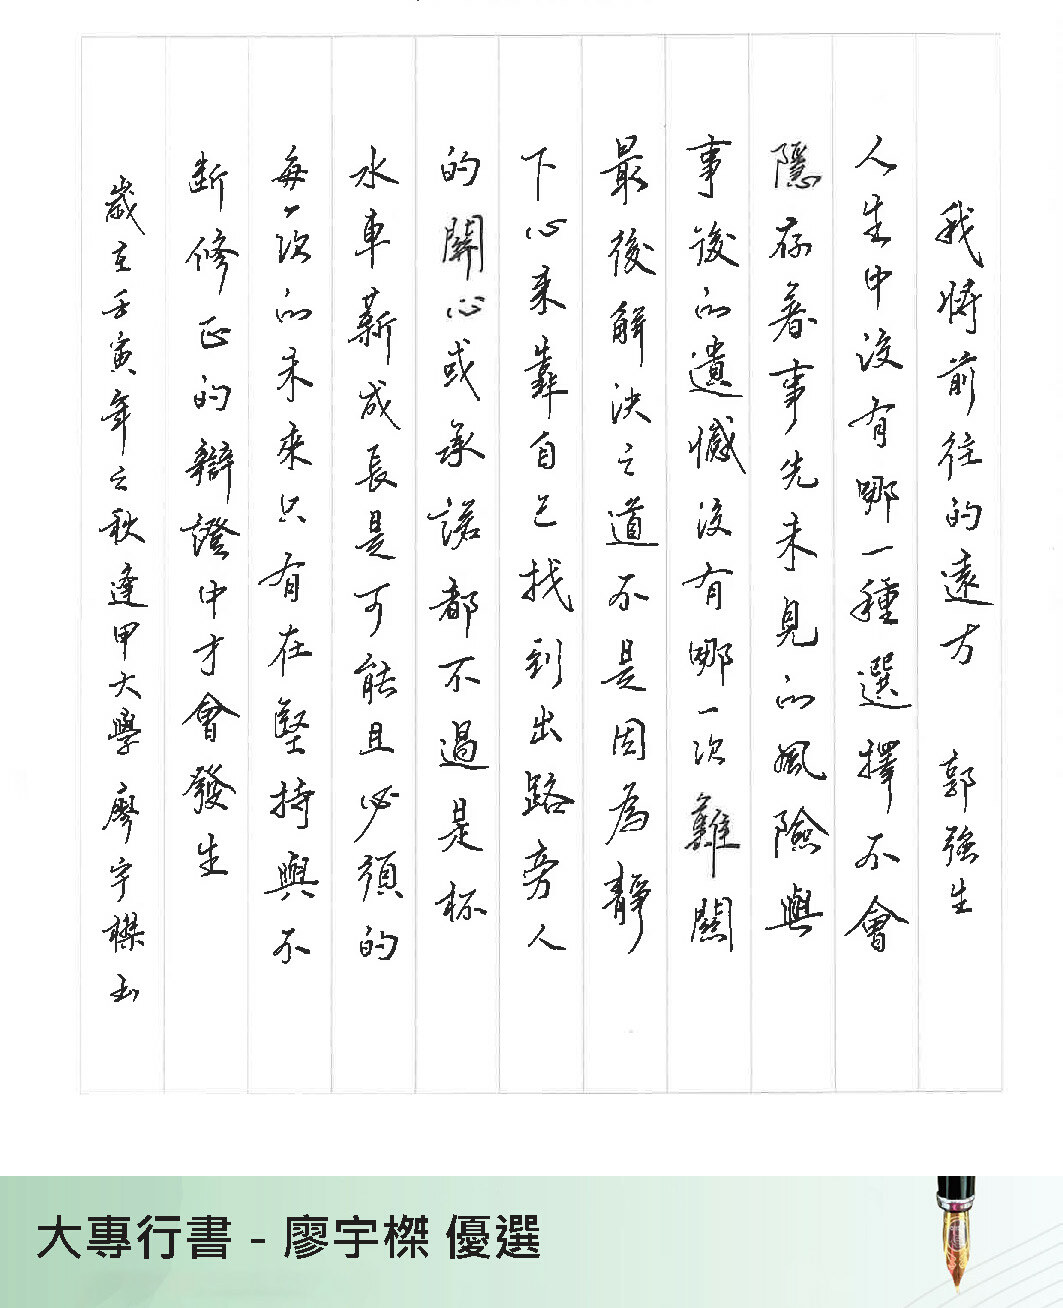 我將前往的遠方 郭強生
人生中沒有哪一種選擇不會
隱存著事先未見的風險與
事後的遺憾沒有哪一次難關
最後解決之道不是因為靜
下心來靠自己找到出路旁人
的關心或承諾都不過是杯
水車薪成長是可能且必須的
每一次的未來只有在堅持與不
斷修正的辯證中才會發生
歲在壬寅年之秋逢甲大學廖宇榤書
大專行書 - 廖宇榤 優選